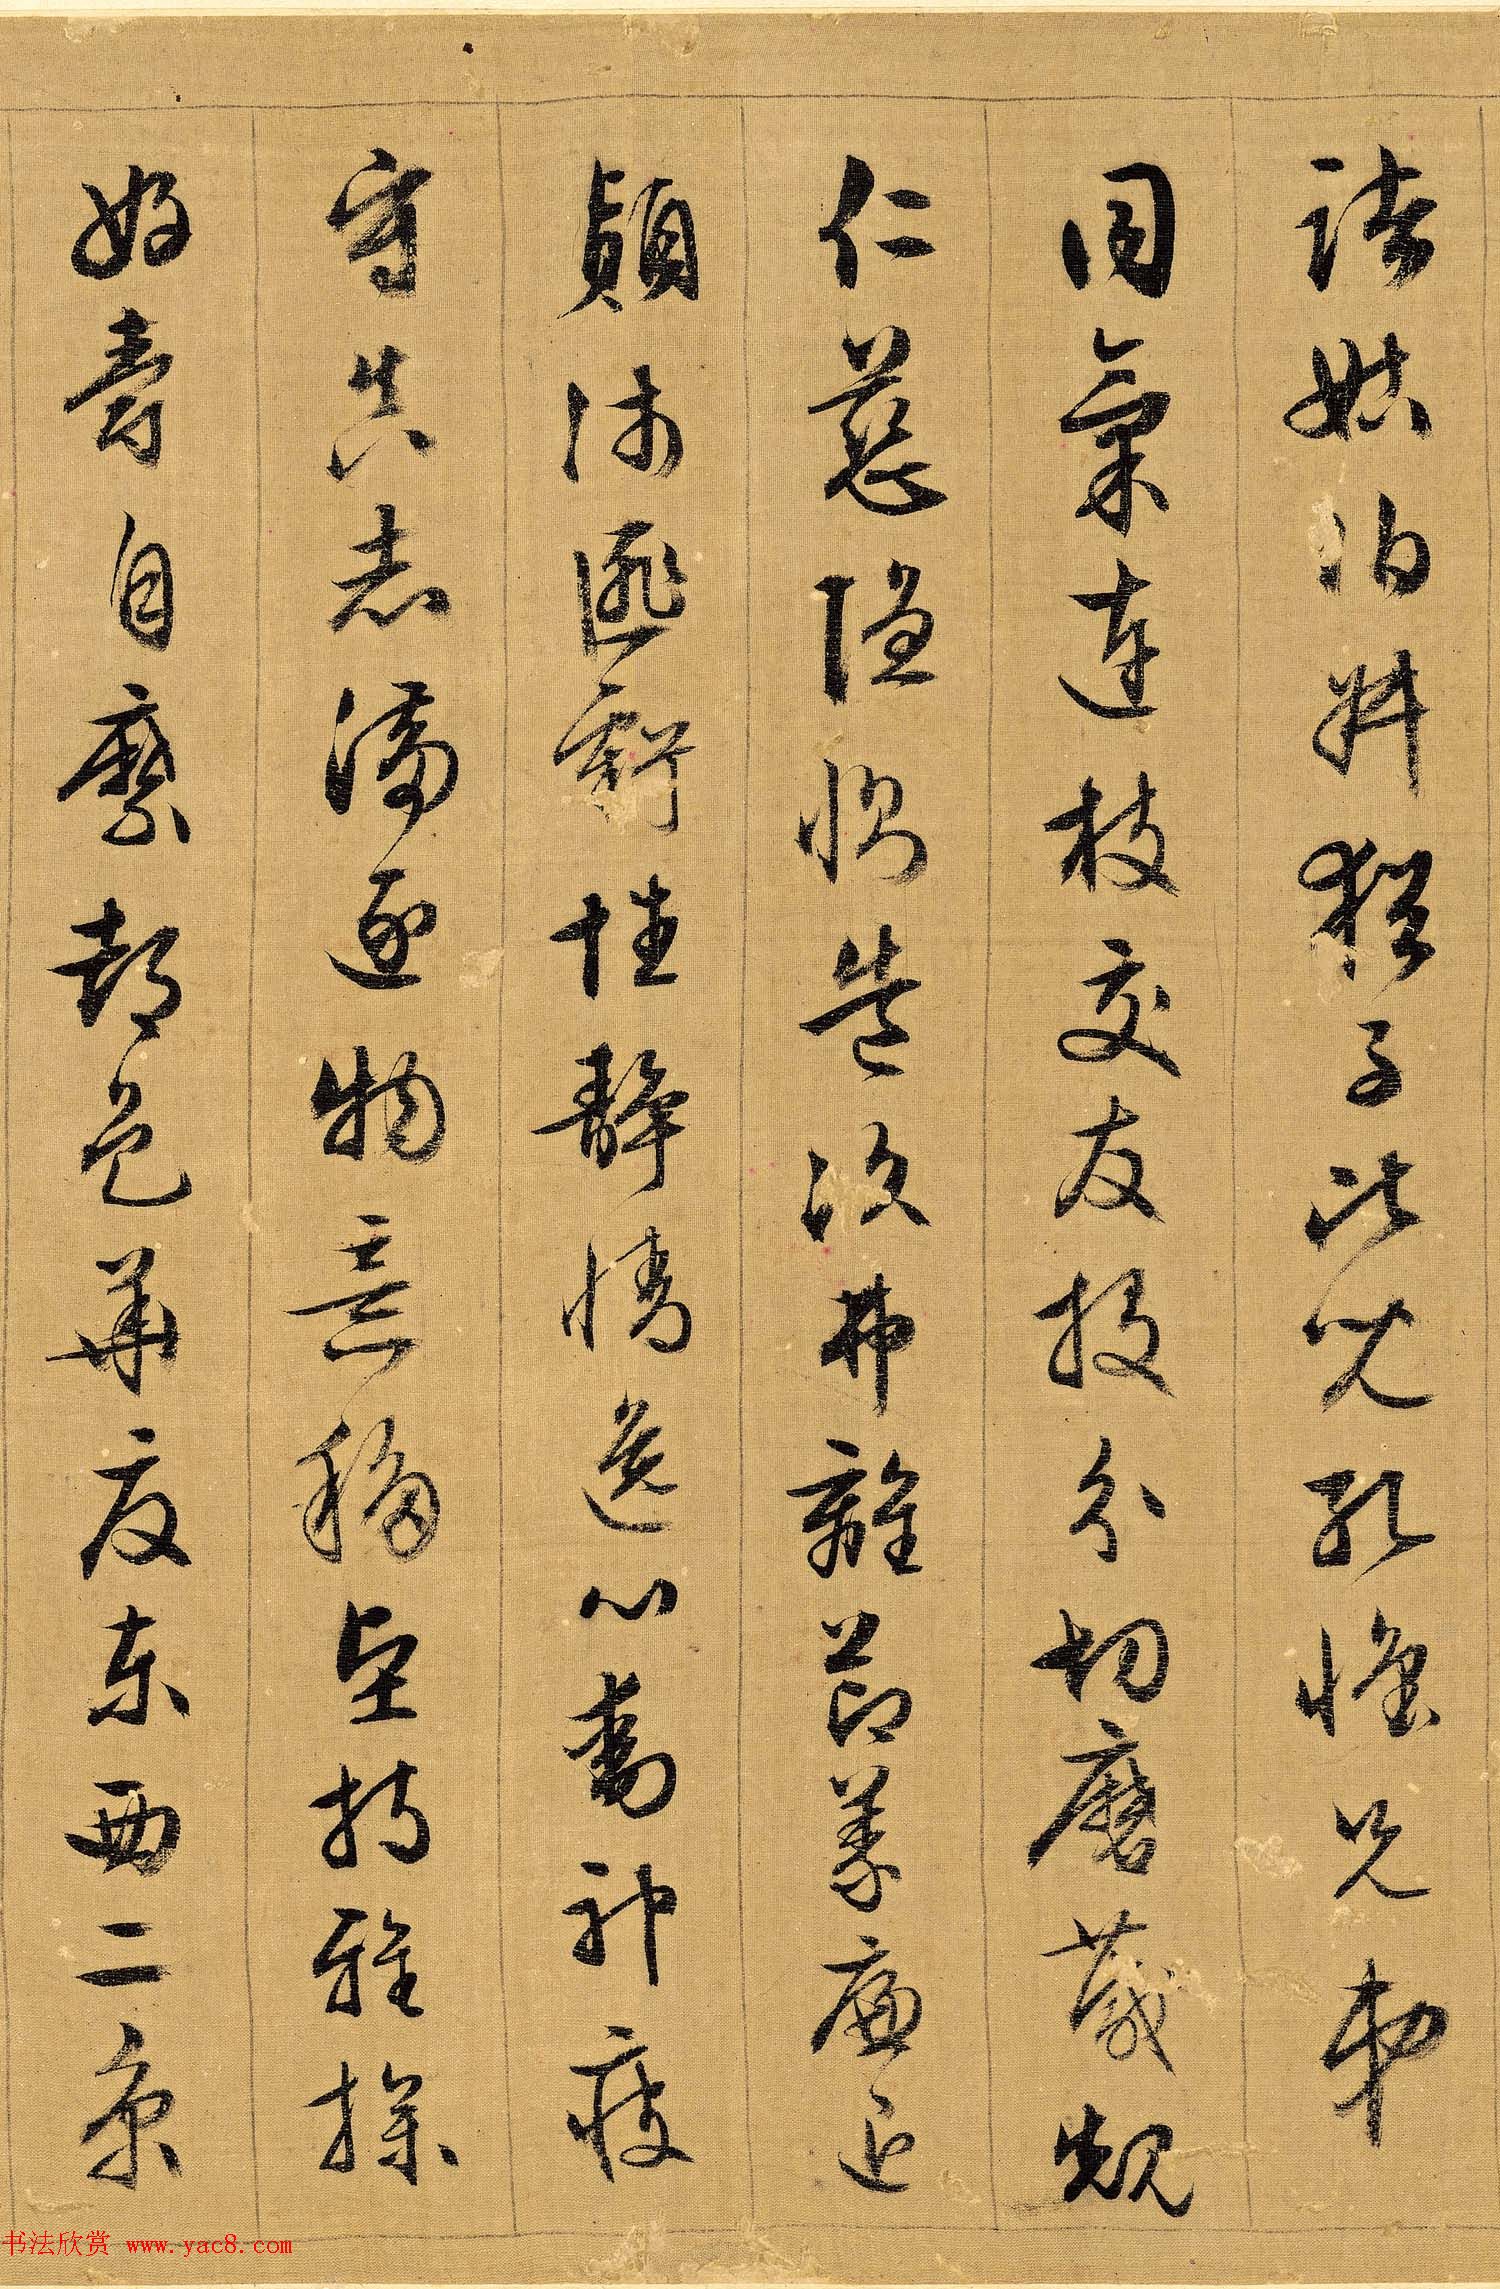 諸姑伯叔猶子比兒孔懷兄弟
同氣連枝交友投分切磨箴規
仁慈隱惻造次弗離節義廉退
顛沛匪虧性靜情逸心動神疲
守真志滿逐物意移堅持雅操
好爵自縻都邑華夏東西二京
书法欣赏 www.yac8.com